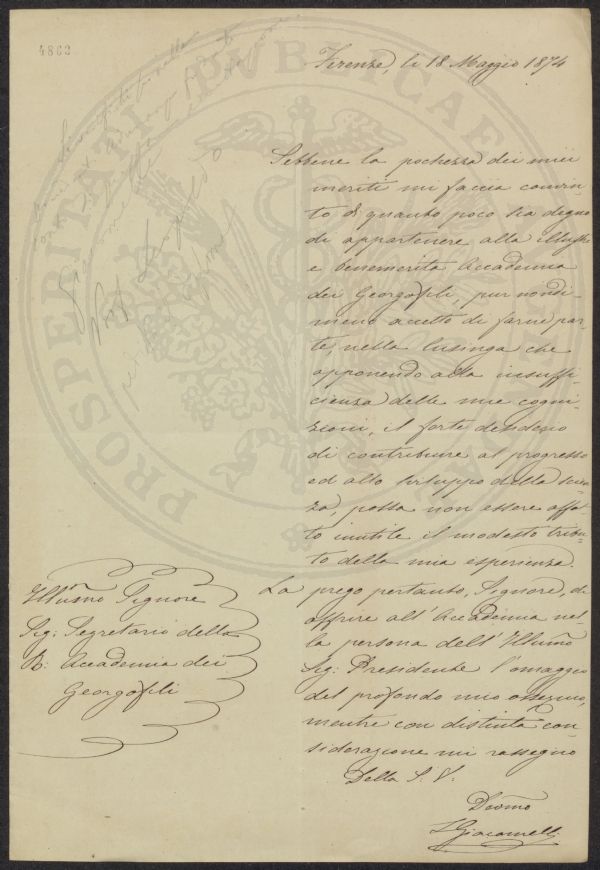 4862
PROSPERITATI PUBLICAE
Firenze, li 18 Maggio 1874
Sebbene la pochezza dei miei
meriti mi faccia convin-
to di quanto poco sia degno
di appartenere alla illustre
e benemerita Accademia
dei Georgofili, pur nondi-
meno accetto di farne par-
te, nella lusinga che
apponendo alla insuffi-
cienza delle mie cogni-
zioni, il forte desiderio
di contribuire al progresso
ed allo sviluppo della scien-
za, possa non essere affat-
to inutile il modesto tribu-
to della mia esperienza.
La prego pertanto, Signore, di
offrire all'Accademia nel-
la persona dell'Illumo
Sig: Presidente l'omaggio
del profondo mio ossequio,
mentre con distinta con-
siderazione mi rassegno
Della S. V.
Devmo
Giacomelli
Illustmo Signore
Sig: Segretario della
R: Accademia dei
Georgofili